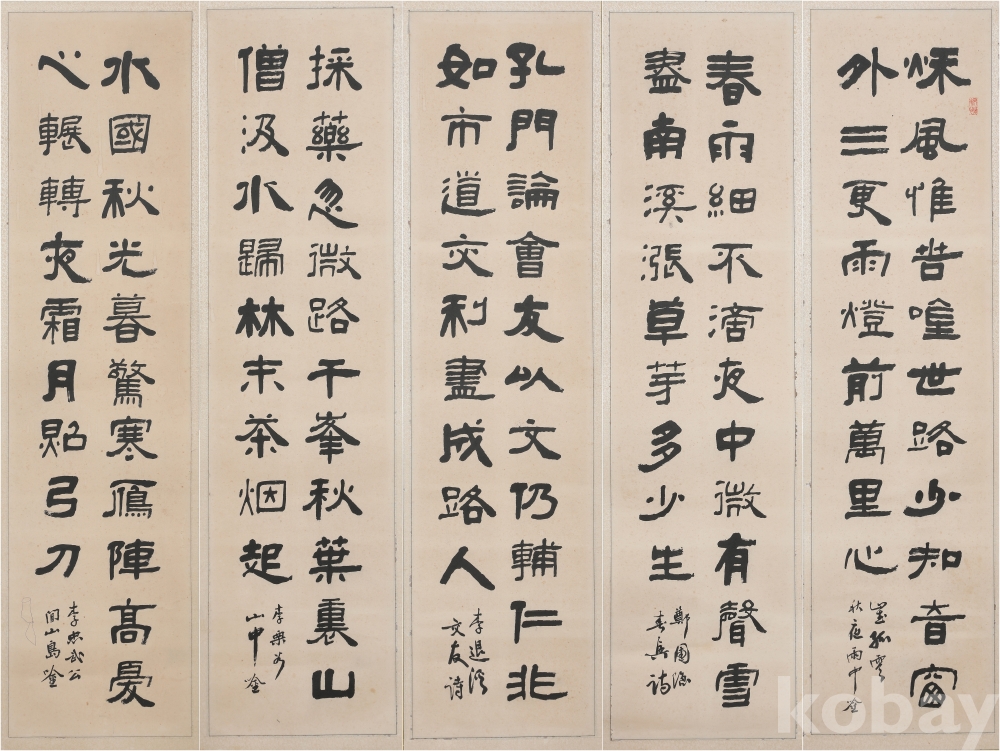 秌風惟苦唫世路少知音窗
外三更雨燈前萬里心
崔孤雲
秋夜雨中唫
春雨細不滴夜中微有聲雪
盡南溪漲草芽多少生
鄭圃隱
春興詩
孔門論會友以文仍輔仁非
如市道交利盡成路人
李退溪
交友詩
採藥忽微路千峯秋葉裏山
僧汲水歸林末茶烟起
李栗谷
山中唫
水國秋光暮驚寒鴈陣高憂
心輾轉夜霜月照弓刀
李忠武公
閑山島唫
kobay